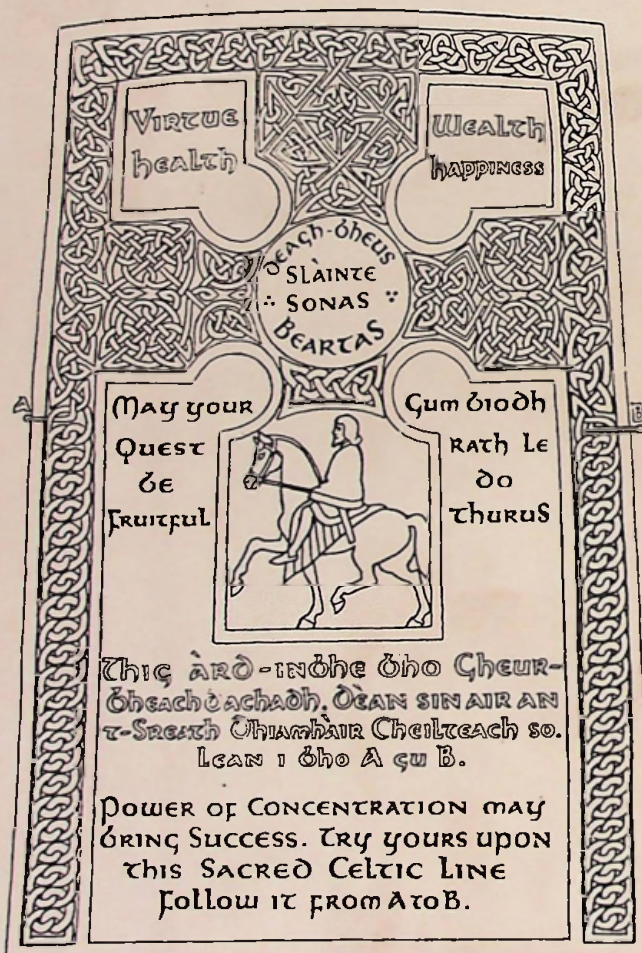 Virtue
health
Wealth
happiness
Deagh-bheus
Slàinte
Sonas
Beartas
A
B
May your
Quest
be
fruitful
Gum biodh
rath le
do
thurus
Thig àrd-inbhe bho Gheur-
bheachdachadh. Dèan sin air an
t-Sreath Dhiamhàir Cheilteach so.
Lean i bho A gu B.
Power of Concentration may
bring Success. Try yours upon
this Sacred Celtic Line
Follow it from A to B.